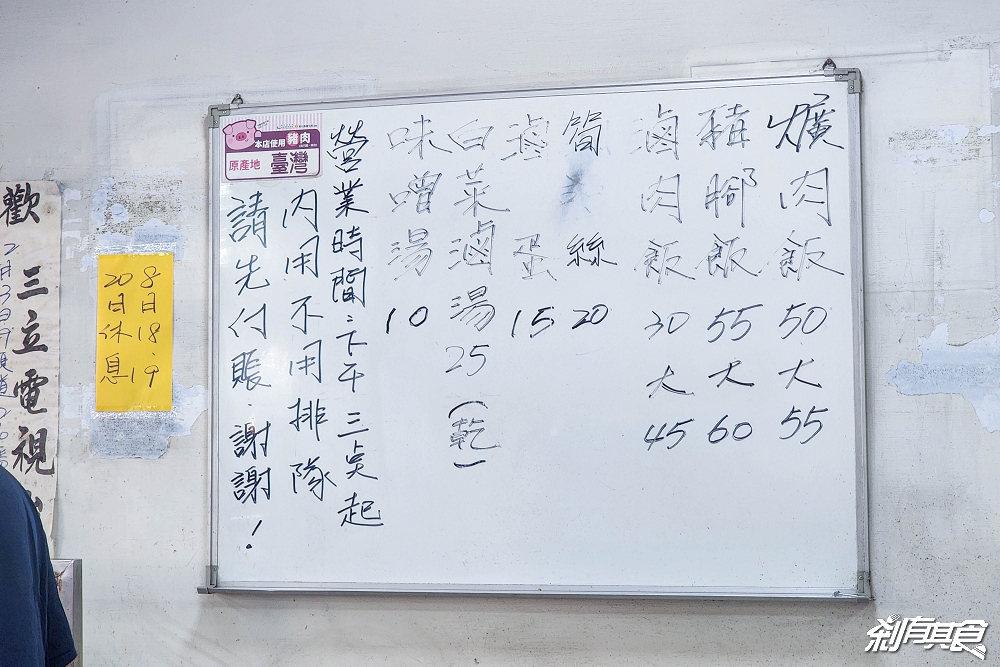 爌肉飯 50 大 55
豬腳飯 55 大 60
滷肉飯 30 大 45
筒絲 20
滷蛋 15
白菜滷湯 25 (乾)
味噌湯 10
營業時間:下午三点起
內用不用排隊
請先付賬.謝謝!
本店使用豬肉
原產地 臺灣
8日18、19
20日休息
歡
三立電視
剎有其食